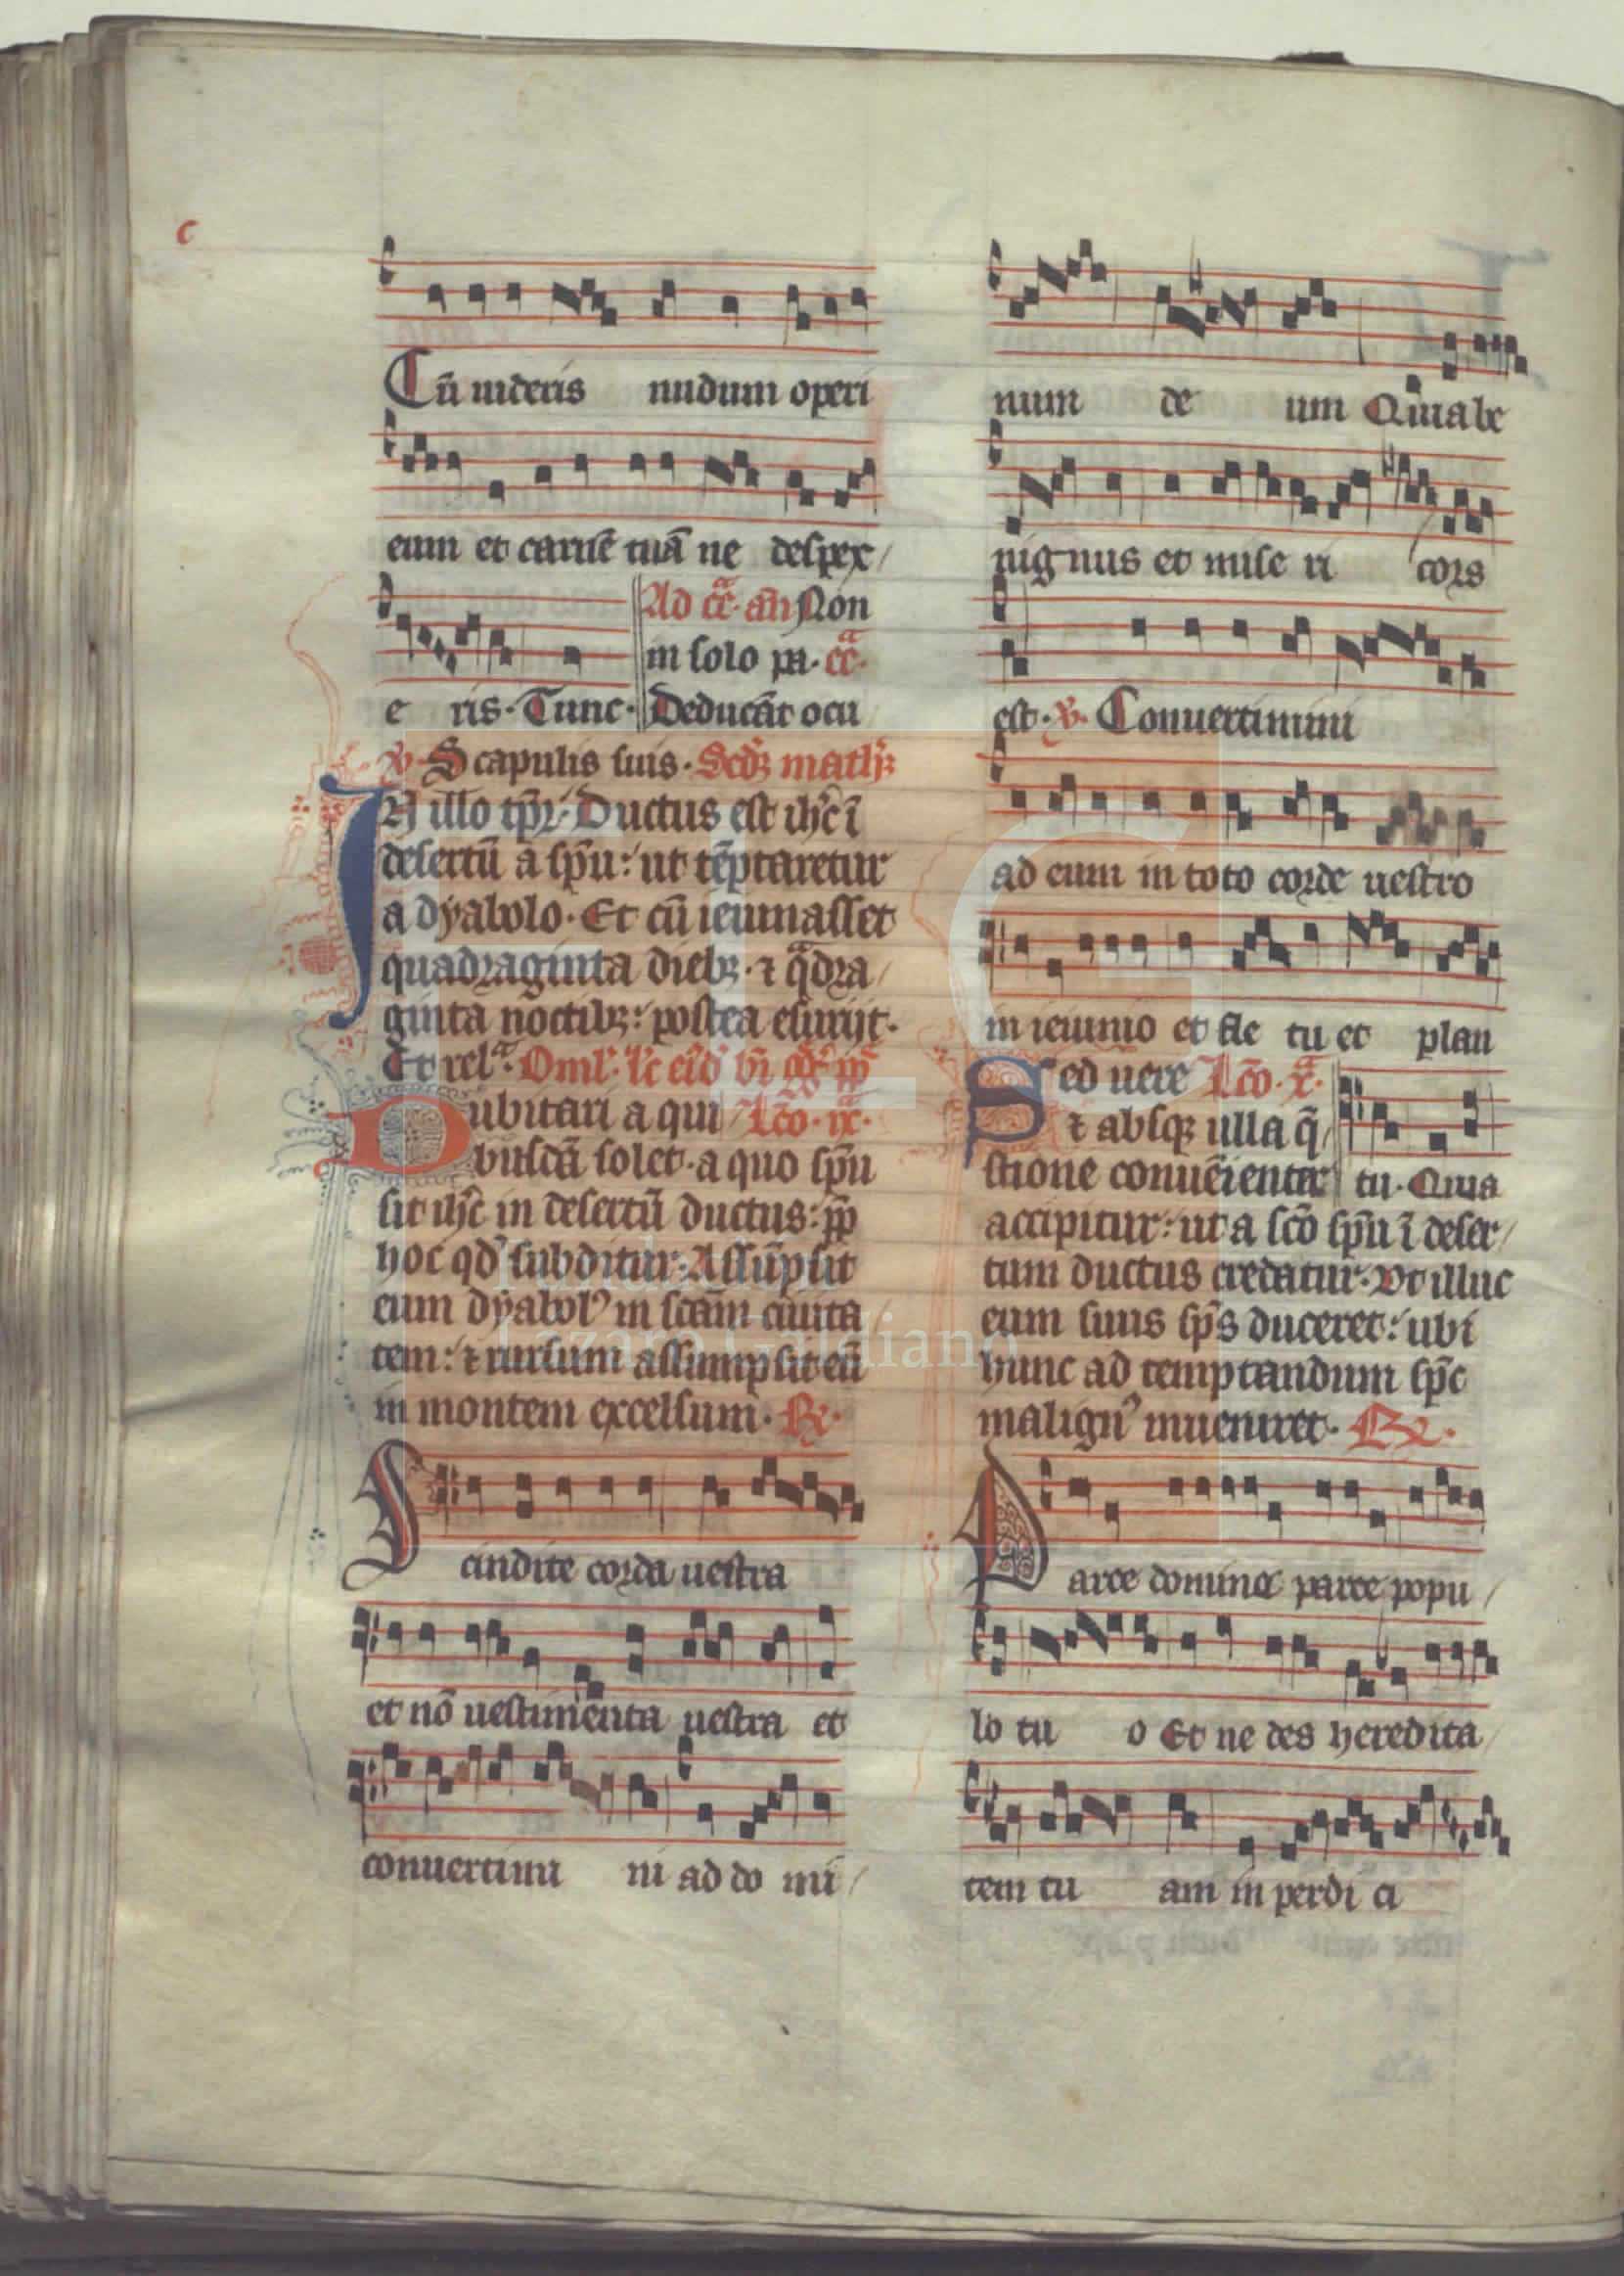 c
Cū uideris nudum operi
eum et carnē tuā ne despex/
Ad cc̄ᵃ. an̄ Non
in solo pa. cc̄ᵃ.
e ris. Tunc. Deducāt ocu
℣. Scapulis suis. Scd'ꝫ math'ꝫ
IN illo tp̄r. Ductus est ih̄c ī
desertū a sp̄u: ut tēptaretur
a dyabolo. Et cū ieiunasset
quadraginta diebꝫ. ⁊ qᵃdra/
ginta noctibꝫ: postea esurijt.
Et relᵃ. Oml'.
Dubitari a qui/ Lc̄o. ixᵃ.
busdā solet. a quo sp̄u
sit ih̄c in desertū ductus: ꝓp̄
hoc qd' subditur: Assūpsit
eum dyabol' in sc̄am ciuita
tem: ⁊ rursum assumpsit eū
in montem excelsum. ℞.
Scindite corda uestra
et nō uestimenta uestra et
conuertimi ni ad do mi/
num de um Quia be
nignus et mise ri cors
est. ℣. Conuertimini
ad eum in toto corde uestro
in ieiunio et fle tu et plan
Sed uere Lc̄o. xᵃ.
⁊ absqꝫ ulla q̄/
stione conuēienter tu. Quia
accipitur: ut a sc̄o sp̄u ī deser/
tum ductus credatur. Vt illuc
eum suus sp̄s duceret: ubi
hunc ad temptandum sp̄c
malign' inueniret. ℞.
Parce domine parce popu/
lo tu o Et ne des heredita/
tem tu am in perdi ci
Lázaro Galdiano